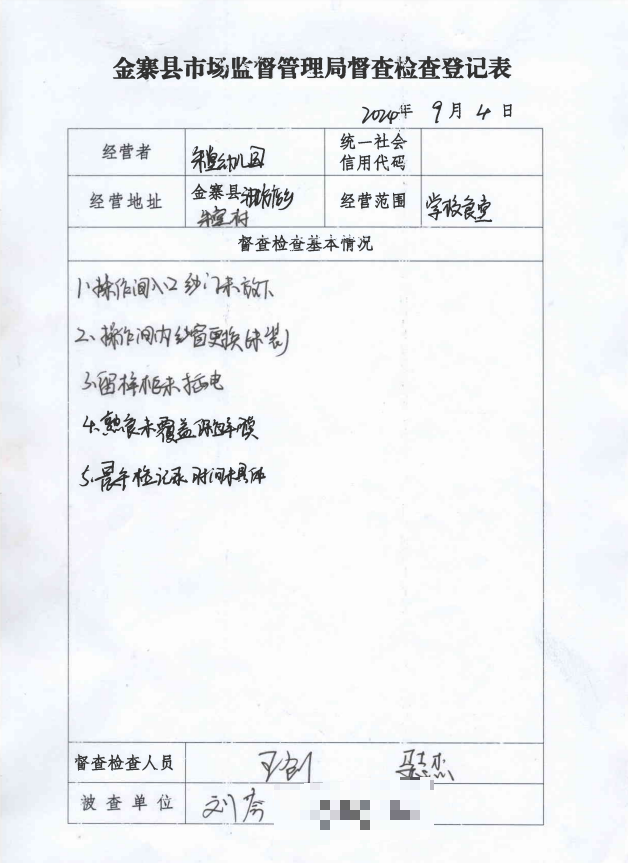 金寨县市场监督管理局督查检查登记表
2024年 9月 4日
经营者 朱堂幼儿园 统一社会信用代码
经营地址 金寨县油坊店乡朱堂村 经营范围 学校食堂
督查检查基本情况
1、操作间入口纱门未放下
2、操作间内纱窗更换(未装)
3、留样柜未插电
4、熟食未覆盖保鲜膜
5、晨午检记录时间未具体
督查检查人员
被查单位 刘